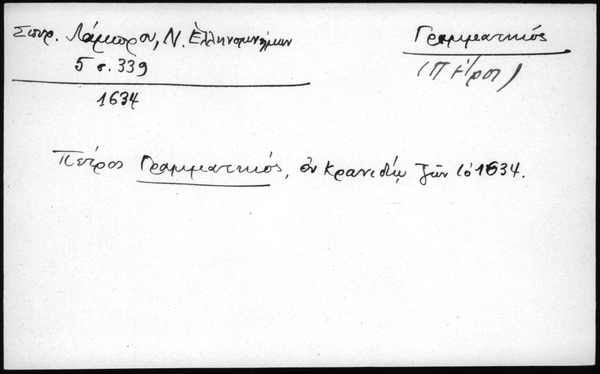 Σπυρ. Λάμπρου, Ν. Ἑλληνομνήμων
5 σ. 339
1634
Γραμματικός
(Πέτρος)
Πέτρος Γραμματικός, ἐν Κρανιδίῳ ζῶν τὸ 1634.